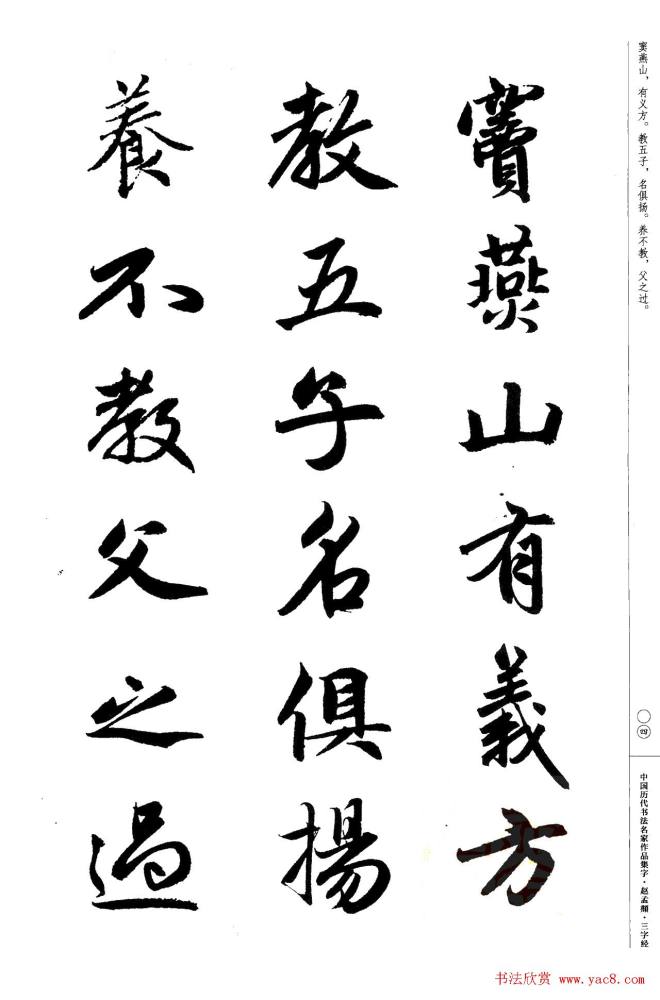 窦燕山，有义方。教五子，名俱扬。养不教，父之过。
竇燕山有義方
教五子名俱揚
養不教父之過
〇四
中国历代书法名家作品集字·赵孟頫·三字经
书法欣赏 www.yac8.com